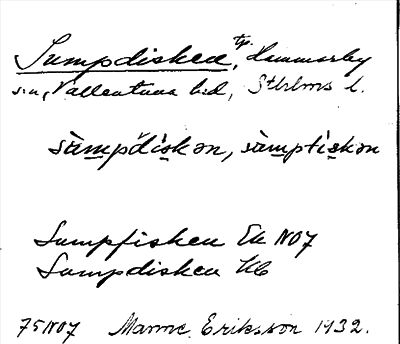 Sumpdisken, tp, Hammarby
sn, Vallentuna hd, Sthlms l.
sùmpdìskən, sùmptìskən
Sumpfisken Ek NO7
Sumpdisken Hb
75 NO7 Manne Eriksson 1932.